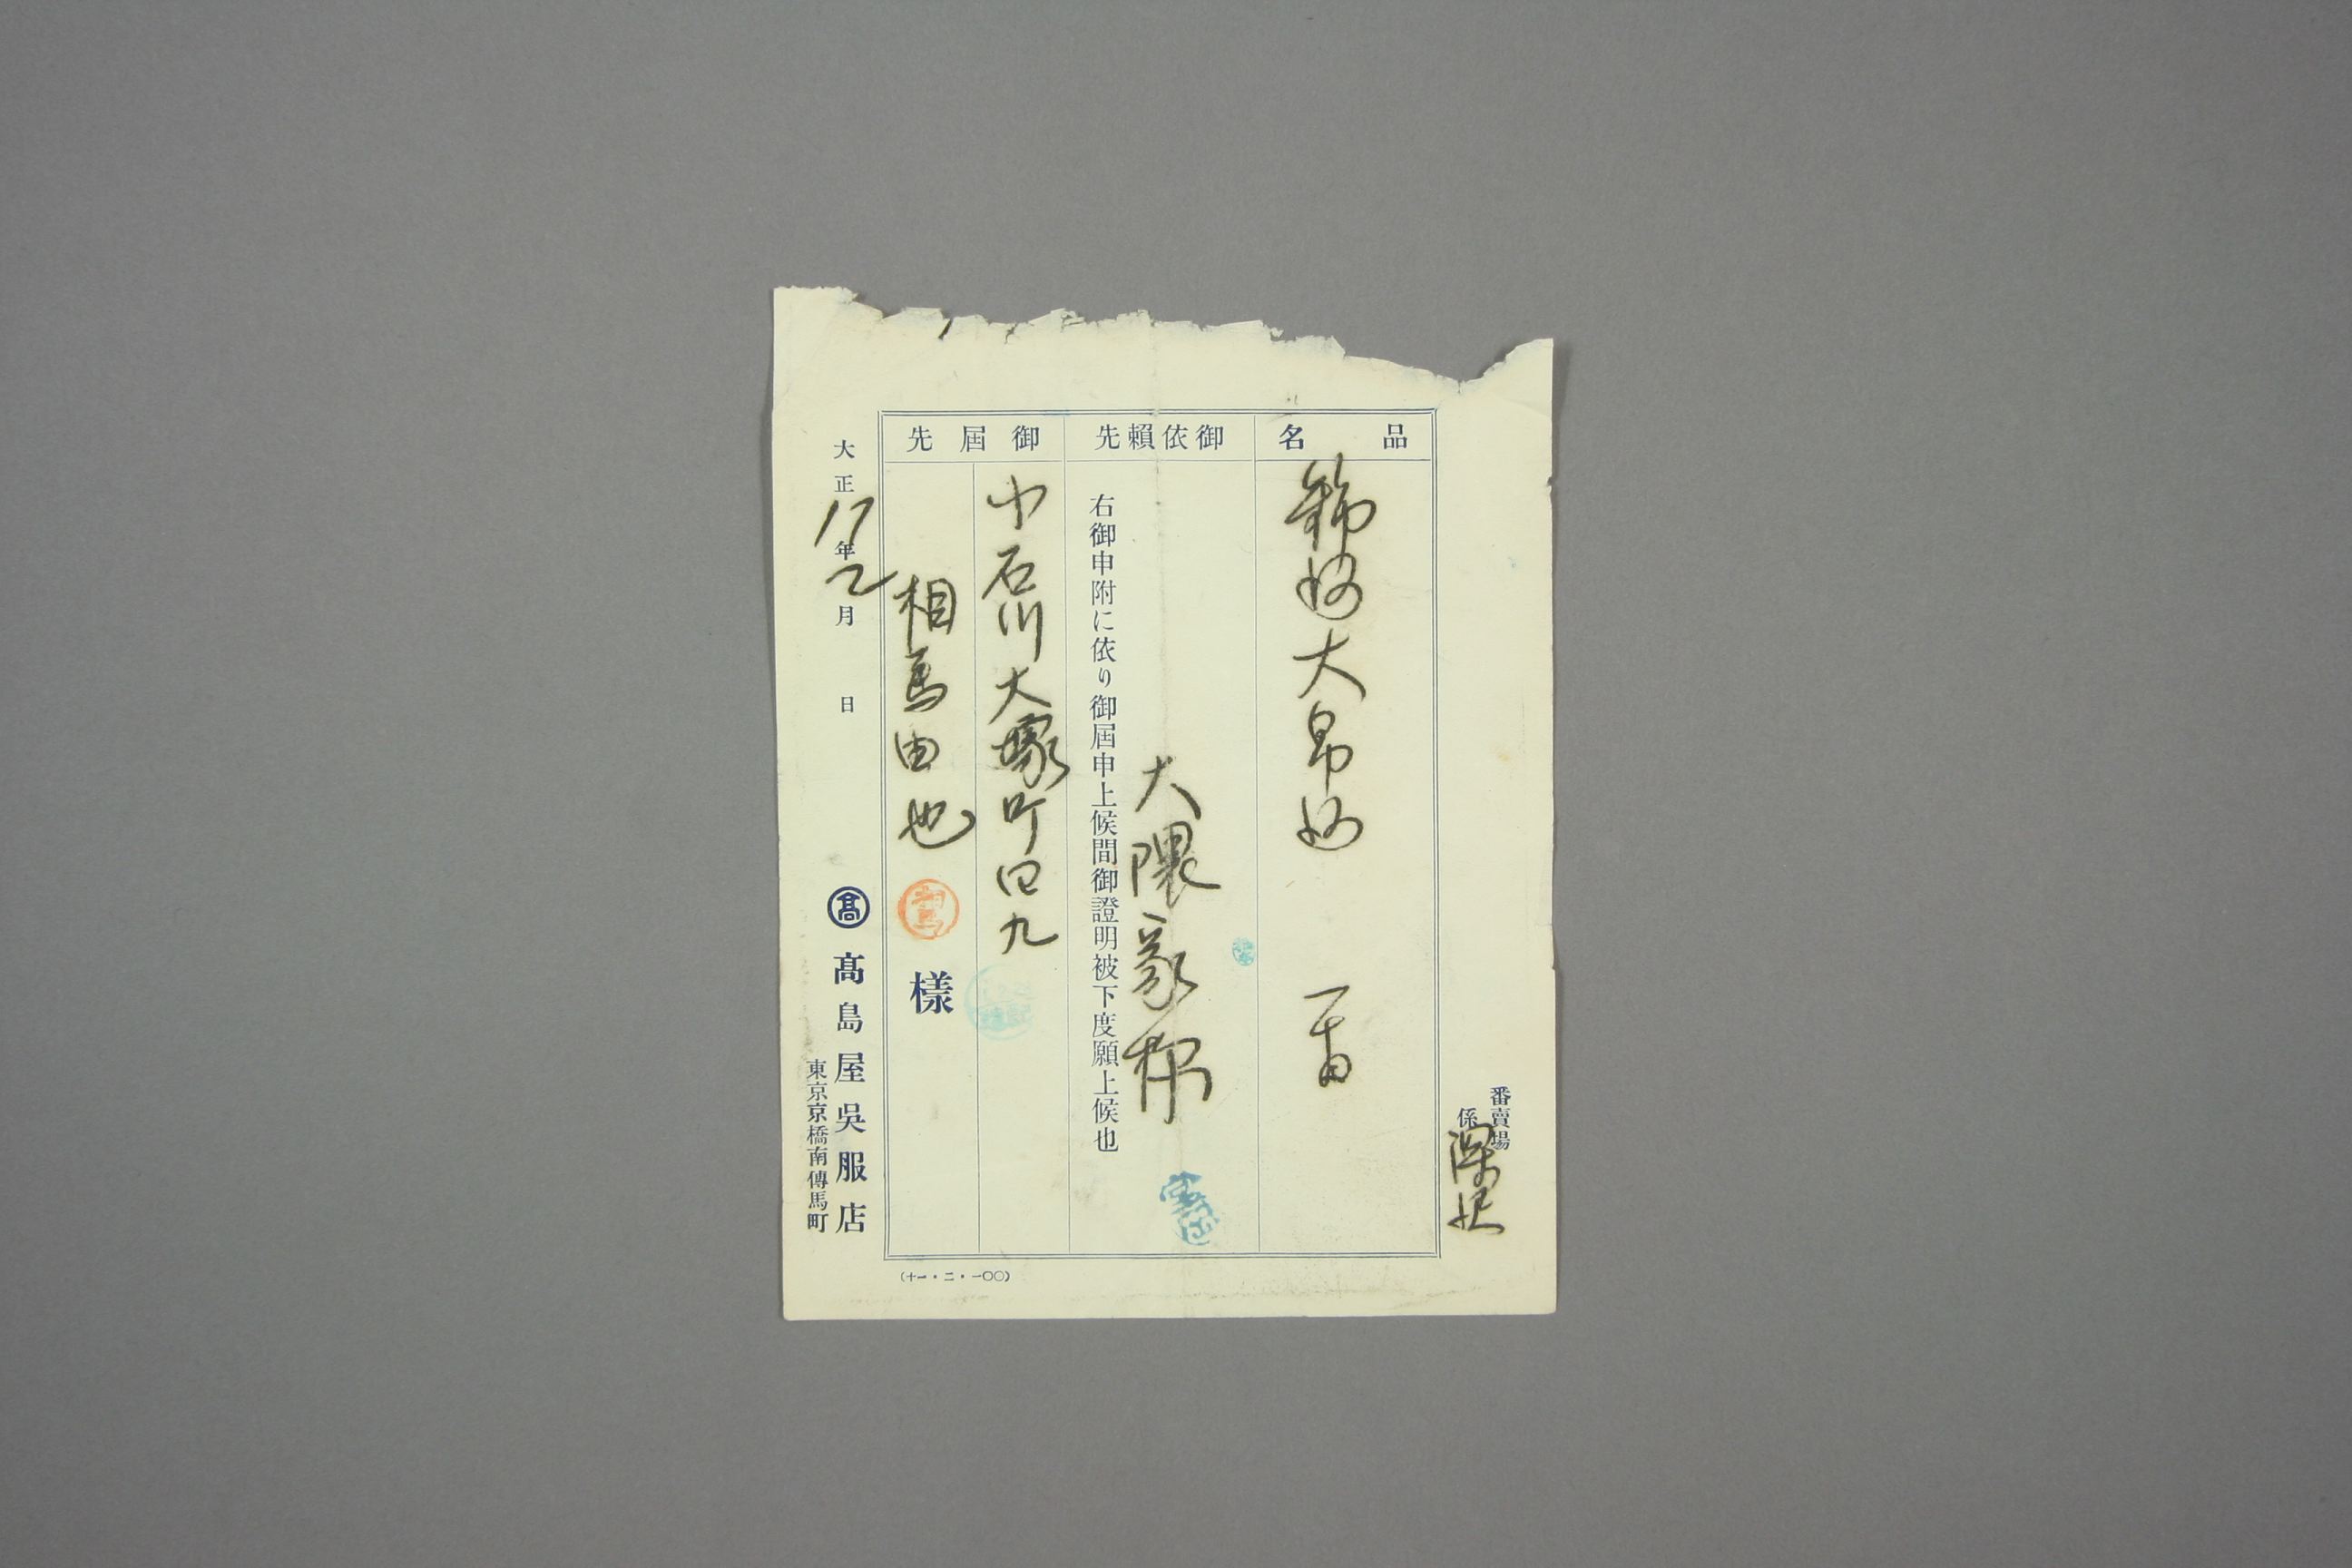 番賣場
係
品名
大帛
御依賴先
大隈家
右御申附に依り御屆申上候間御證明被下度願上候也
御屆先
小石川大塚町四九
相馬由也
相馬
樣
大正12年2月 日
髙
髙島屋吳服店
東京京橋南傳馬町
(十一・二・一〇〇)